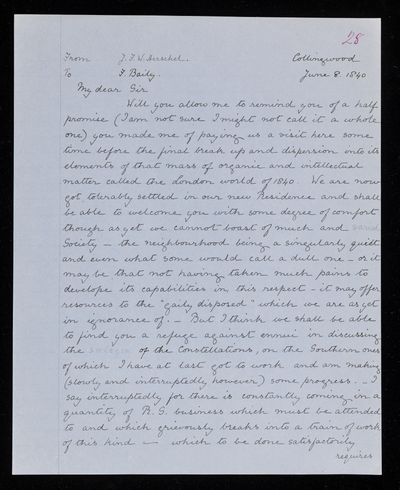 28
From J. F. W. Herschel. Collingwood
To F. Baily. June 8. 1840
My dear Sir
Will you allow me to remind you of a half
promise (I am not sure I might not call it a whole
one) you made me of paying us a visit here some
time before the final break up and dispersion into its
elements of that mass of organic and intellectual
matter called the London world of 1840. We are now
got tolerably settled in our new Residence and shall
be able to welcome you with some degree of comfort
though as yet we cannot boast of much and
Society — the neighbourhood being a singularly quiet
and even what some would call a dull one — or it
may be that not having taken much pains to
develope its capabilities in this respect — it may offer
resources to the "gaily disposed" which we are as yet
in ignorance of. — But I think we shall be able
to find you a refuge against ennui in discussing
the of the Constellations, on the Southern ones
of which I have at last got to work and am making
(slowly and interruptedly however) some progress. — I
say interruptedly for there is constantly coming in a
quantity of R. S. business which must be attended
to and which grievously breaks into a train of work
of this kind — which to be done satisfactorily
requires